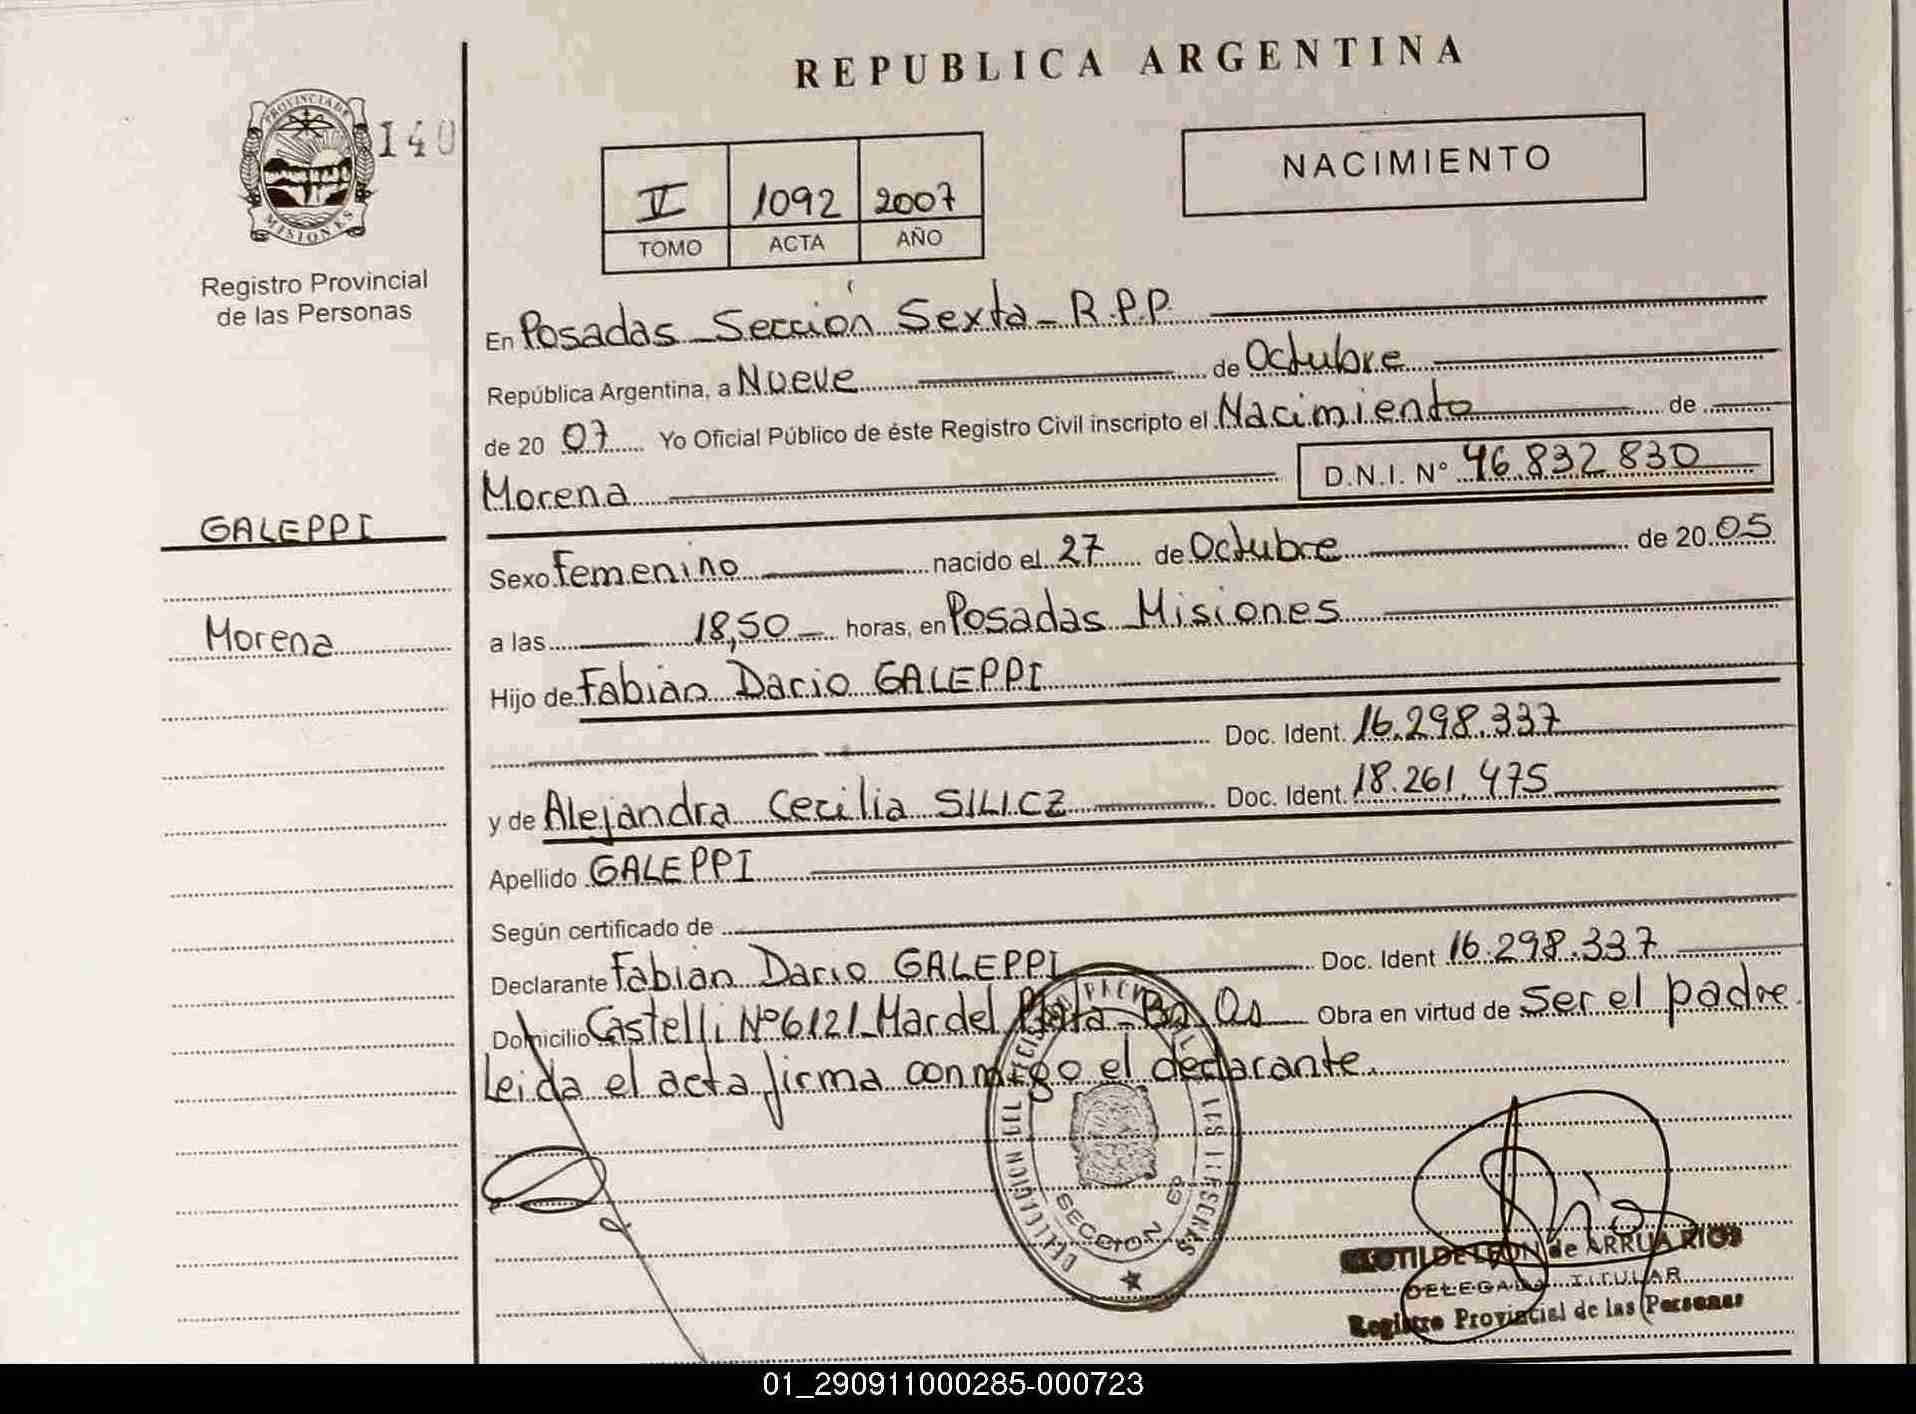 REPUBLICA ARGENTINA
PROVINCIA DE
MISIONES
140
Registro Provincial
de las Personas
V 1092 2007
TOMO ACTA AÑO
NACIMIENTO
En Posadas Sección Sexta - R.P.P.
República Argentina, a Nueve de Octubre
de 20 07 Yo Oficial Público de éste Registro Civil inscripto el Nacimiento de
Morena D.N.I. N° 46.832.830
GALEPPI
Morena
Sexo Femenino nacido el 27 de Octubre de 20 05
a las 18,50 horas, en Posadas Misiones
Hijo de Fabián Dario GALEPPI
Doc. Ident. 16.298.337
y de Alejandra Cecilia SILICZ Doc. Ident. 18.261.475
Apellido GALEPPI
Según certificado de
Declarante Fabian Dario GALEPPI Doc. Ident 16.298.337
Domicilio Castelli N° 6121 Mar del Plata - Bs As Obra en virtud de Ser el padre
Leida el acta firma conmigo el declarante.
SECCION 6a
CLOTILDE LEON de ARRUA RIOS
DELEGADA TITULAR
Registro Provincial de las Personas
01_290911000285-000723